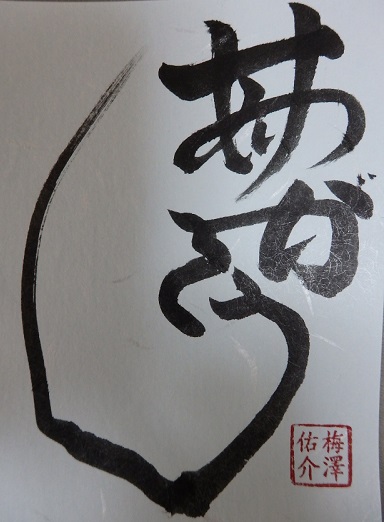 ありがとう
梅澤
佑介